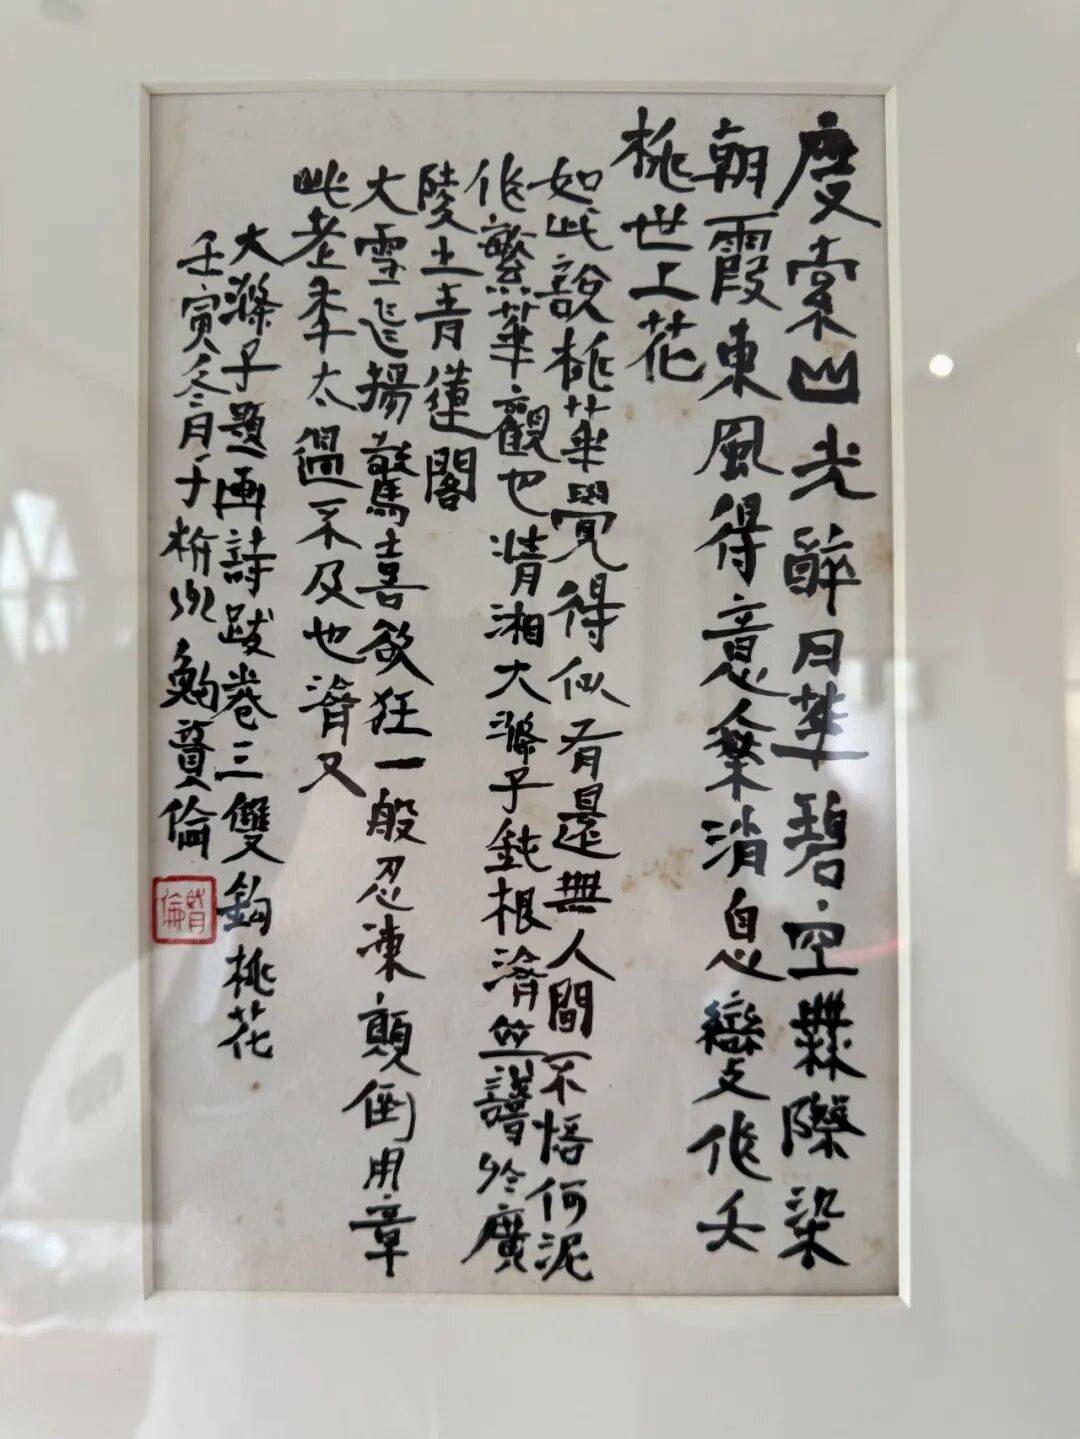 度索山光醉月華碧空無際染
朝霞東風得意椉消息變作夭
桃世上花
如此說桃華覺得似有還無人間不悟何泥
作繁華觀也清湘大滌子鈍根濟竝於廣
陵之青蓮閣
大雪飛揚驚喜欲狂一般忍凍顛倒用章
此老秊太過不及也濟又
大滌子題画詩跋卷三雙鉤桃花
壬寅冬月于倫